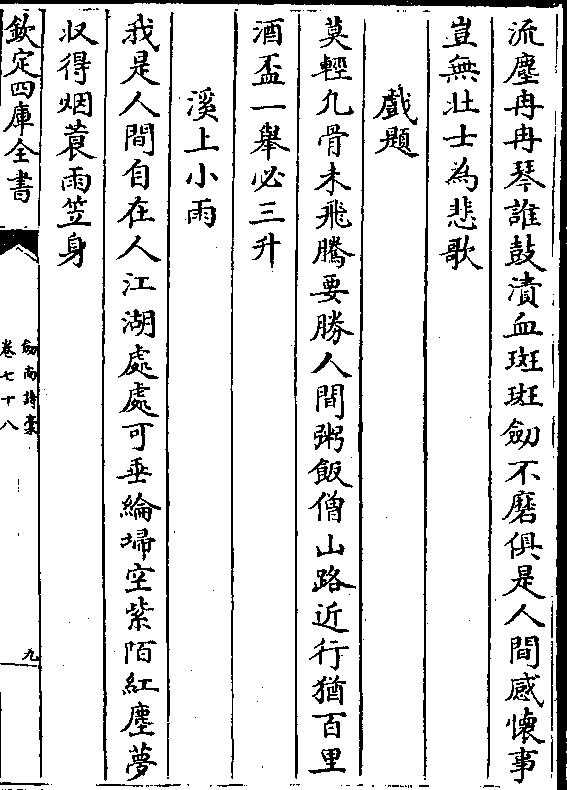 流塵冉冉琴誰鼓漬血斑斑劒不磨俱是人間感懷事
豈無壯士為悲歌
戲題
莫輕凡骨未飛騰要勝人間粥飯僧山路近行猶百里
酒盃一舉必三升
溪上小雨
我是人間自在人江湖處處可垂綸埽空紫陌紅塵夢
収得烟蓑雨笠身
欽定四庫全書
劒南詩稾
卷七十八
九